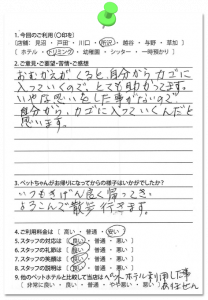 1.今回のご利用(○印を)
[店舗:見沼・戸田・川口・所沢・越谷・与野・草加]
ホテル・トリミング・幼稚園・シッター・一時預かり
2.ご意見・ご要望・苦情・ご感想
おむかえがくると自分からカゴに
入っていくので、とても助かってます。
いやな思いをした事がないので
自分からカゴに入っていくんだと
思います。
3.ペットちゃんがお帰りになってからの様子はいかがでしたか?
いつもきげん良く帰ってき
よろこんで散歩行きます。
4.ご利用料金は [高い・普通・安い]
5.スタッフの対応は [良い・普通・悪い]
6.スタッフの礼節は [良い・普通・悪い]
7.スタッフの笑顔は [良い・普通・悪い]
8.スタッフの説明は [良い・普通・悪い]
9.他のペットホテルと比較して当店は ペットホテル利用した事
[良い・良い・普通・やや悪い・悪い] ありません